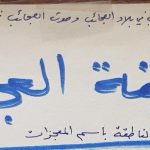 في بلاد العجائب وصوت العجائب
فة العج
لناطقة باسم المعجزات